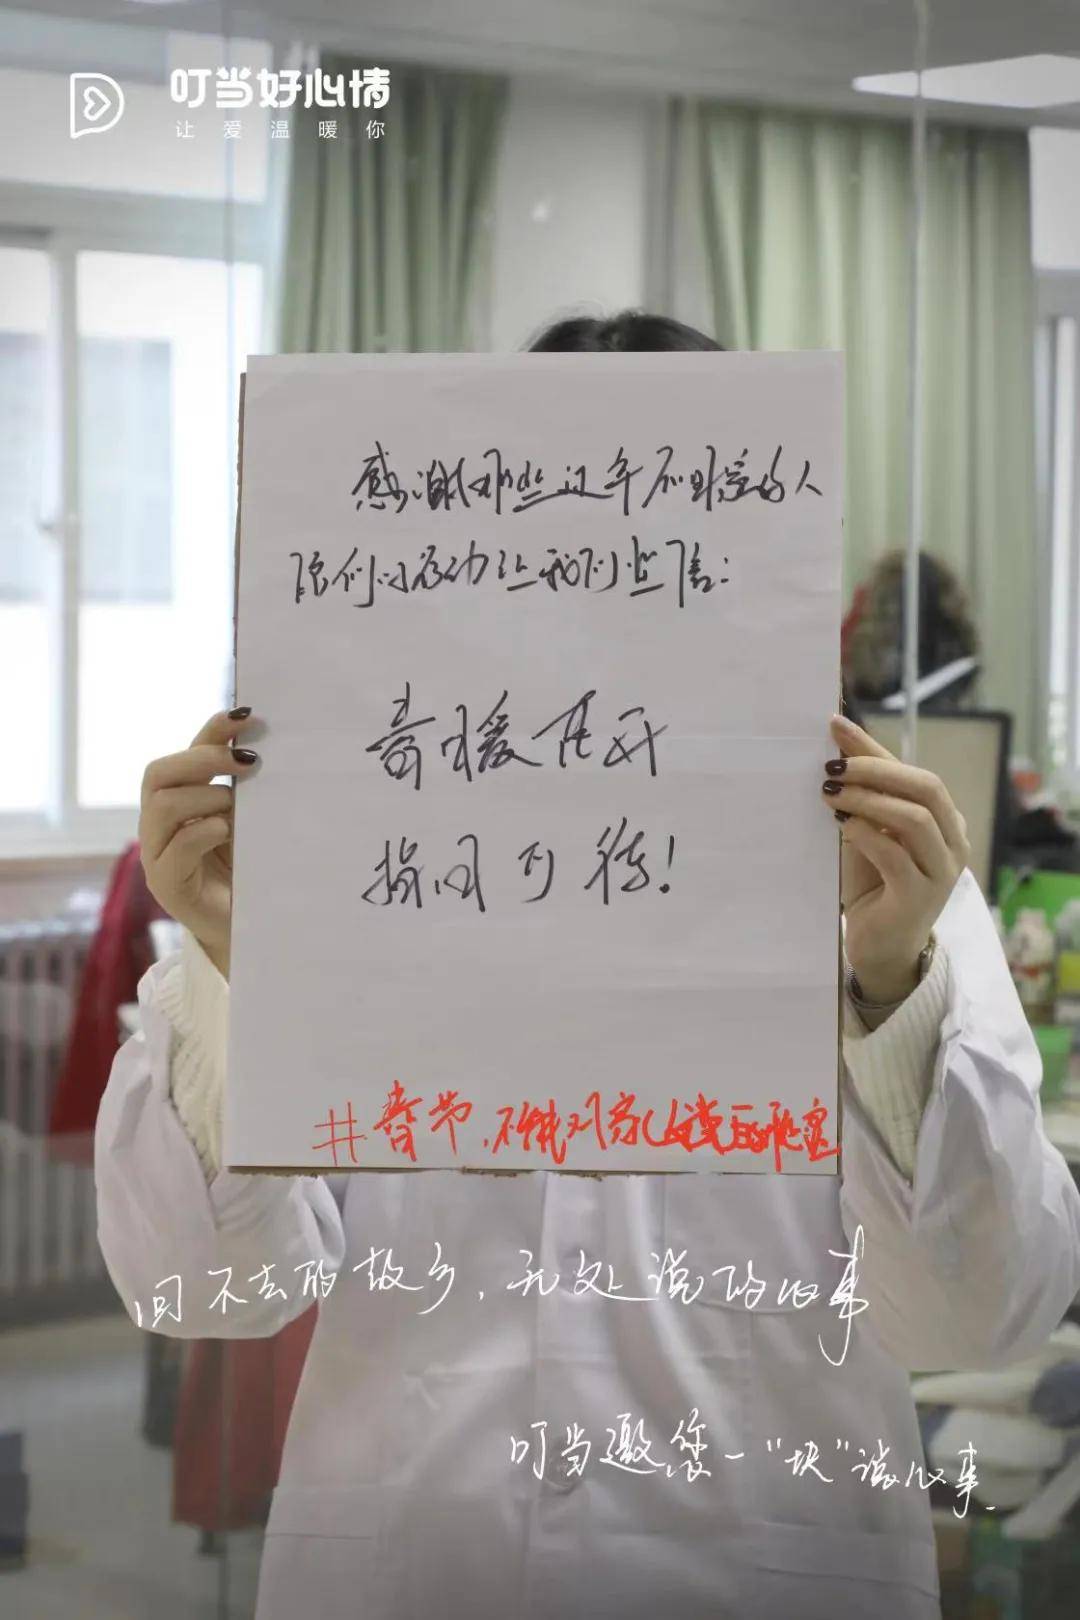 叮当好心情
让爱温暖你
感谢那些过年不回家的人
你们的行动让我们坚信：
春暖花开
指日可待！
#春节,不能对家人说的
回不去的故乡,无处说的心事
叮当邀您一"块"谈心事